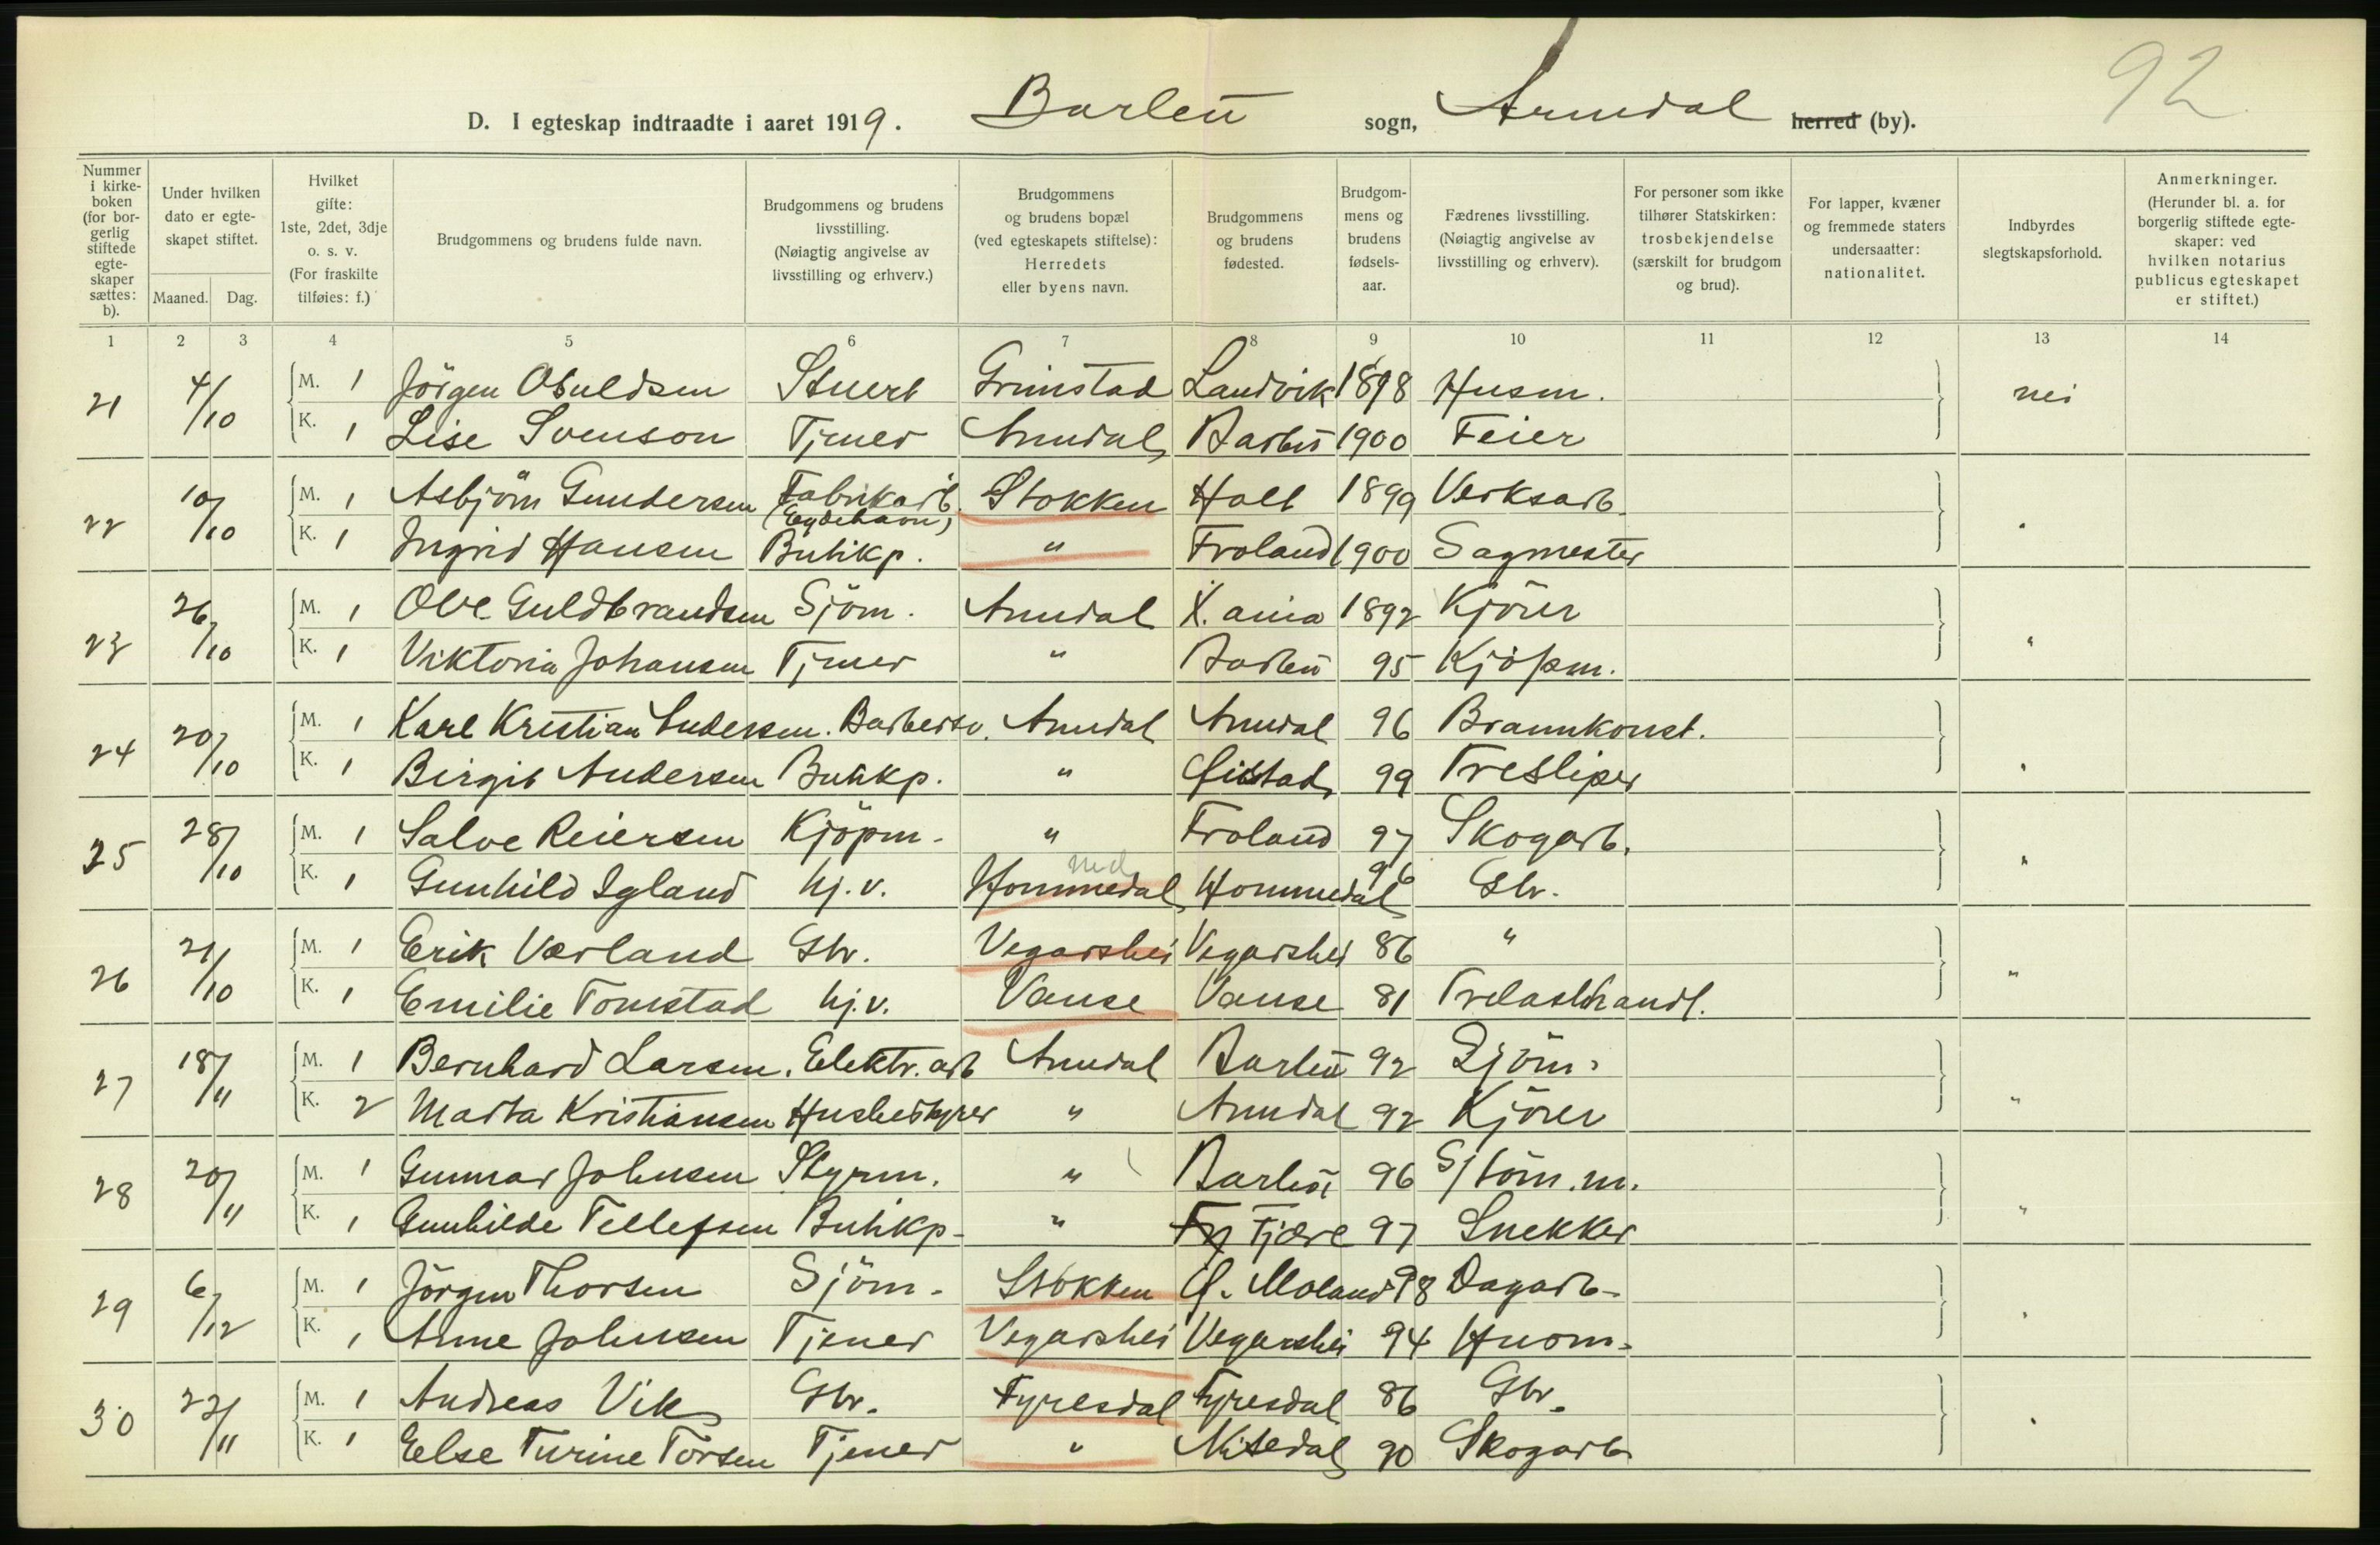 92
D. I egteskap indtraadte i aaret 1919. Barbu sogn, Arendal herred (by).
Nummer i kirke-boken (for bor-gerlig stiftede egte-skaper sættes: b).
Under hvilken dato er egte-skapet stiftet.
Maaned. Dag.
Hvilket gifte: 1ste, 2det, 3dje o. s. v. (For fraskilte tilføies: f.)
Brudgommens og brudens fulde navn.
Brudgommens og brudens livsstilling. (Nøiagtig angivelse av livsstilling og erhverv.)
Brudgommens og brudens bopæl (ved egteskapets stiftelse): Herredets eller byens navn.
Brudgommens og brudens fødested.
Brudgom-mens og brudens fødsels-aar.
Fædrenes livsstilling. (Nøiagtig angivelse av livsstilling og erhverv).
For personer som ikke tilhører Statskirken: trosbekjendelse (særskilt for brudgom og brud).
For lapper, kvæner og fremmede staters undersaatter: nationalitet.
Indbyrdes slegtskapsforhold.
Anmerkninger. (Herunder bl. a. for borgerlig stiftede egte-skaper: ved hvilken notarius publicus egteskapet er stiftet.)
1 2 3 4 5 6 7 8 9 10 11 12 13 14
21 4/10 M. 1 Jörgen Obuldsen Stuert Grimstad Landvik 1898 Husm. nei
K. 1 Lise Svenson Tjener Arendal Barbu 1900 Feier
22 10/10 M. 1 Asbjörn Gundersen Fabrikarb. (Eydehavn) Stokken Holt 1899 Verksarb.
K. 1 Ingrid Hansen Butikp. " Froland 1900 Sagmester
23 26/10 M. 1 Ole Guldbrandsen Sjöm. Arendal X.ania 1892 Kjörer
K. 1 Viktoria Johansen Tjener " Barbu 95 Kjöpm. "
24 20/10 M. 1 Karl Kristian Andersen. Barbersv. Arendal Arendal 96 Brannkonst.
K. 1 Birgit Andersen Butikp. " Öiestad 99 Tresliper "
25 28/10 M. 1 Salve Reiersen Kjöpm. " Froland 97 Skogarb.
K. 1 Gunhild Igland hj.v. Hommedal Hommedal 96 Gbr. "
26 21/10 M. 1 Erik Værland Gbr. Vegarshei Vegarshei 86 "
K. 1 Emilie Tomstad hj.v. Vanse Vanse 81 Trelasthandl. "
27 18/11 M. 1 Bernhard Larsen. Elektr. arb Arendal Barbu 92 Sjöm.
K. 2 Marta Kristiansen Husbestyrer " Arendal 92 Kjörer "
28 20/11 M. 1 Gunnar Johnsen Styrm. " Barbu 96 Sjöm.m.
K. 1 Gunhilde Tellefsen Butikp. " Fjære 97 Snekker "
29 6/12 M. 1 Jörgen Thorsen Sjöm. Stokken Ö. Moland 98 Dagarb.
K. 1 Anne Johnsen Tjener Vegarshei Vegarshei 94 Husm. "
30 22/11 M. 1 Andreas Vik Gbr. Fyresdal Fyresdal 86 Gbr.
K. 1 Else Turine Torsen Tjener " Nisedal 90 Skogarb "